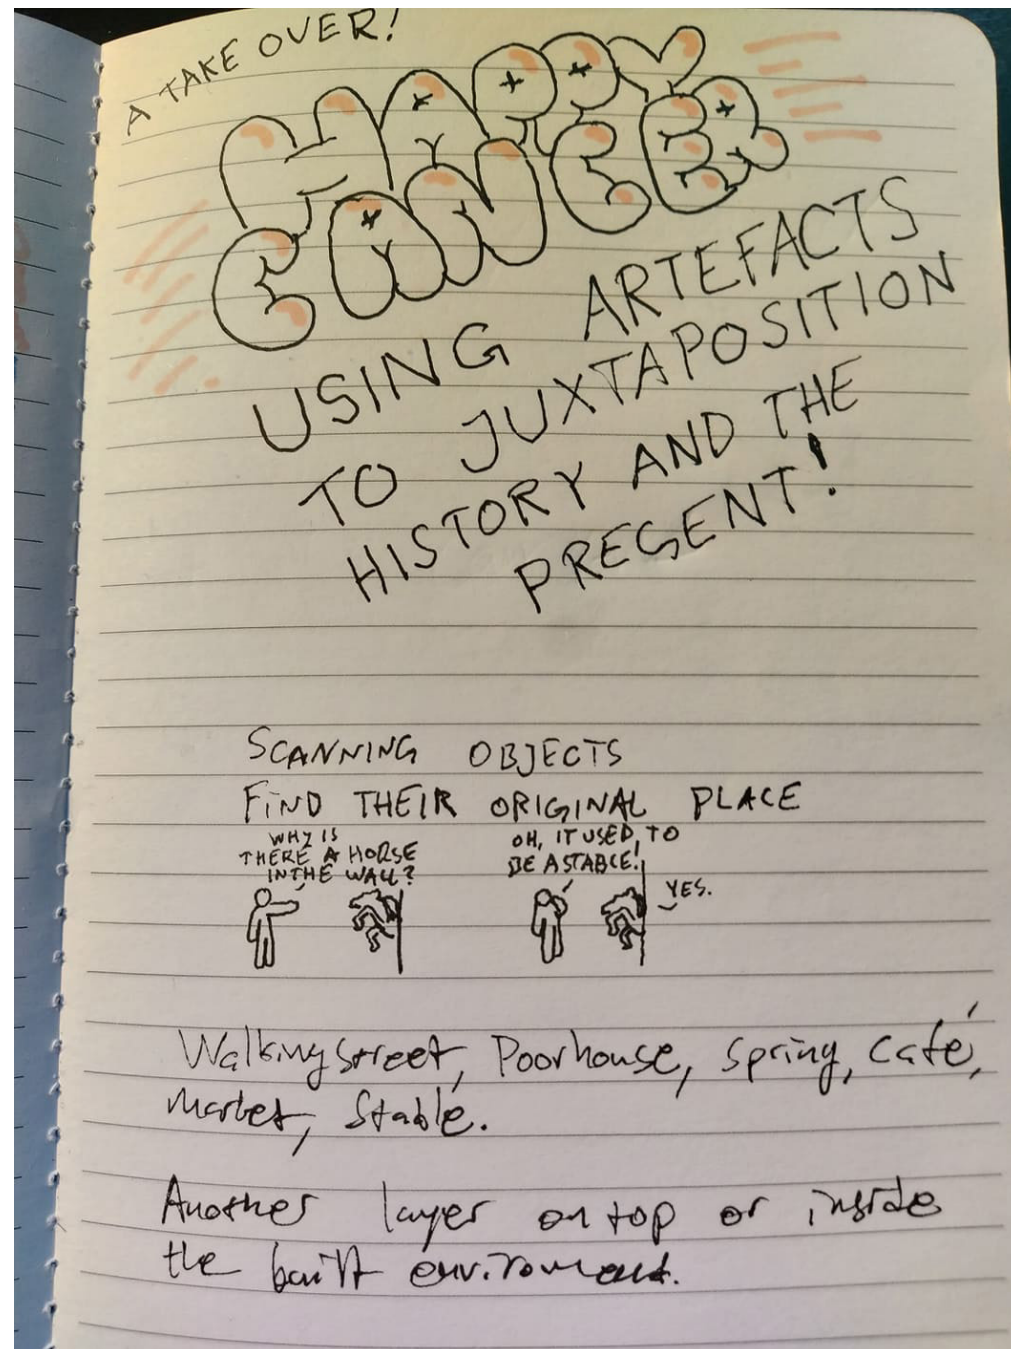 A TAKE OVER!
HAPPY
CANCER
USING ARTEFACTS
TO JUXTAPOSITION
HISTORY AND THE
PRESENT!
SCANNING OBJECTS
FIND THEIR ORIGINAL PLACE
WHY IS
THERE A HORSE
IN THE WALL?
OH, IT USED TO
BE A STABLE!
YES.
Walkingstreet, Poorhouse, Spring, Café,
Market, Stable.
Another layer on top or inside
the built enviroment.